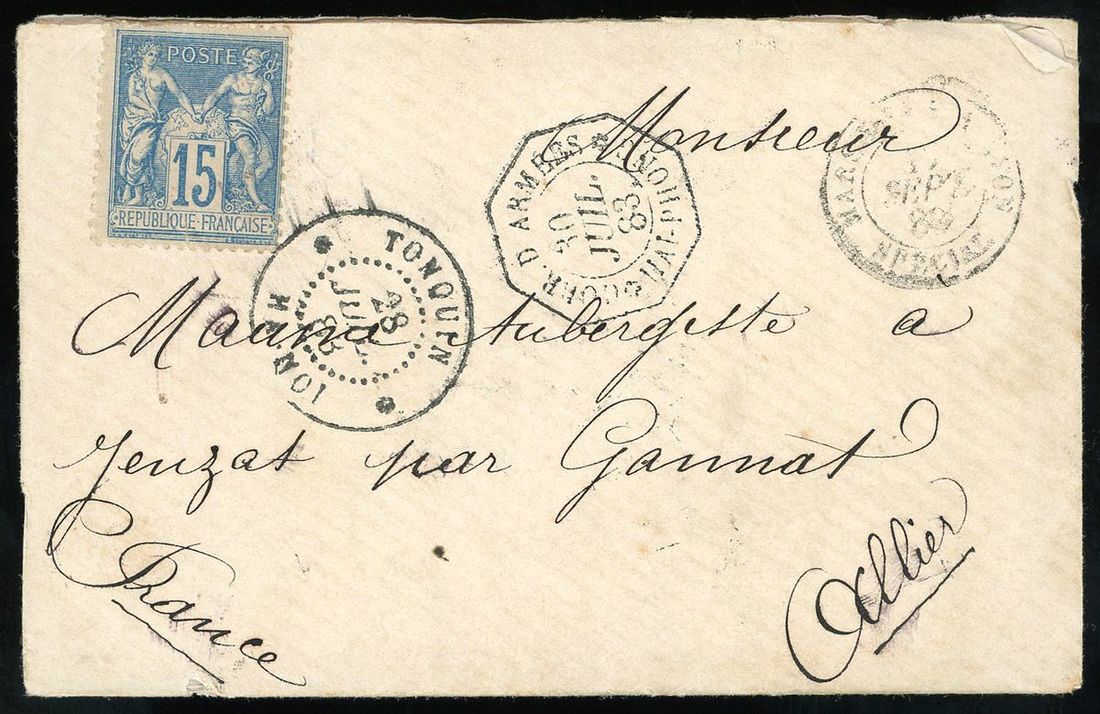 POSTE
15
REPUBLIQUE FRANÇAISE
TONQUIN
28
JUIL
83
HANOI
CORR. D ARMÉES
HAI-PHONG
30
JUIL.
83
SEPT
83
Monsieur
Aubergiste a
Jenzat par Gannat
Allier
France